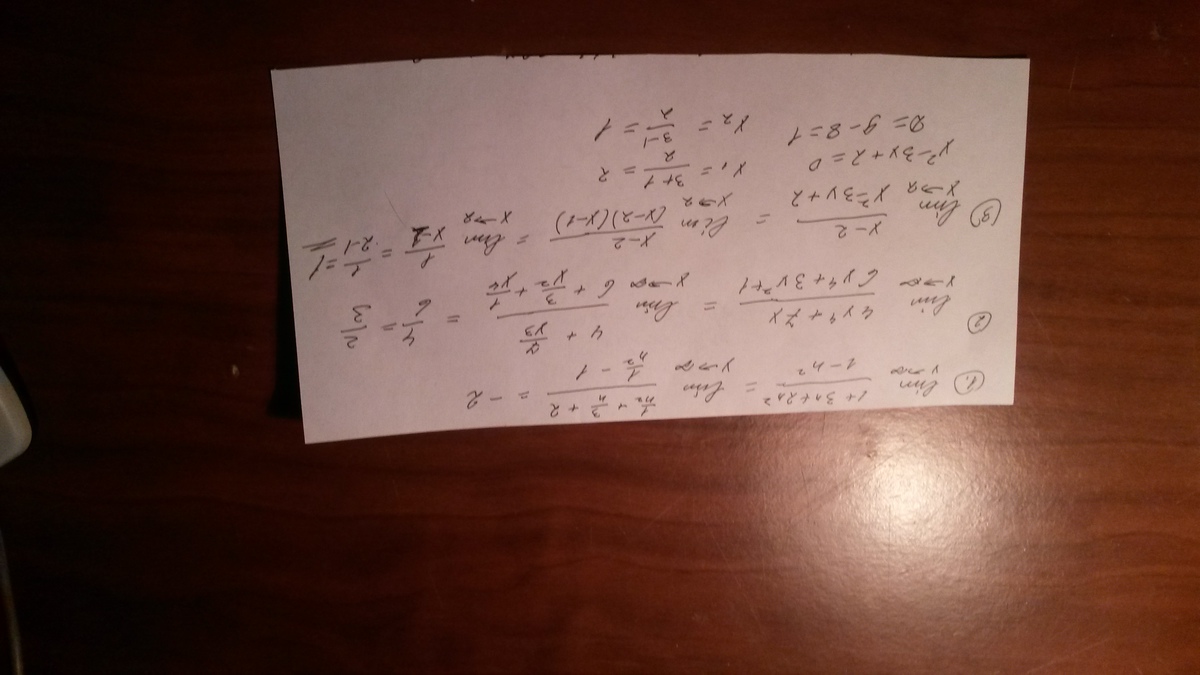 1. lim x→∞ (1+3n+2n²)/(1-n²) = lim x→∞ (1/n² + 3/n + 2)/(1/n² - 1) = -2
2 lim x→∞ (4x⁴+7x)/(6x⁴+3x²+1) = lim x→∞ (4 + 7/x³)/(6 + 3/x² + 1/x⁴) = 4/6 = 2/3
3 lim x→2 (x-2)/(x²-3x+2) = lim x→2 (x-2)/((x-2)(x-1)) = lim x→2 1/(x-1) = 1/(2-1) = 1
x²-3x+2=0 x₁ = (3+1)/2 = 2
D=9-8=1 x₂ = (3-1)/2 = 1